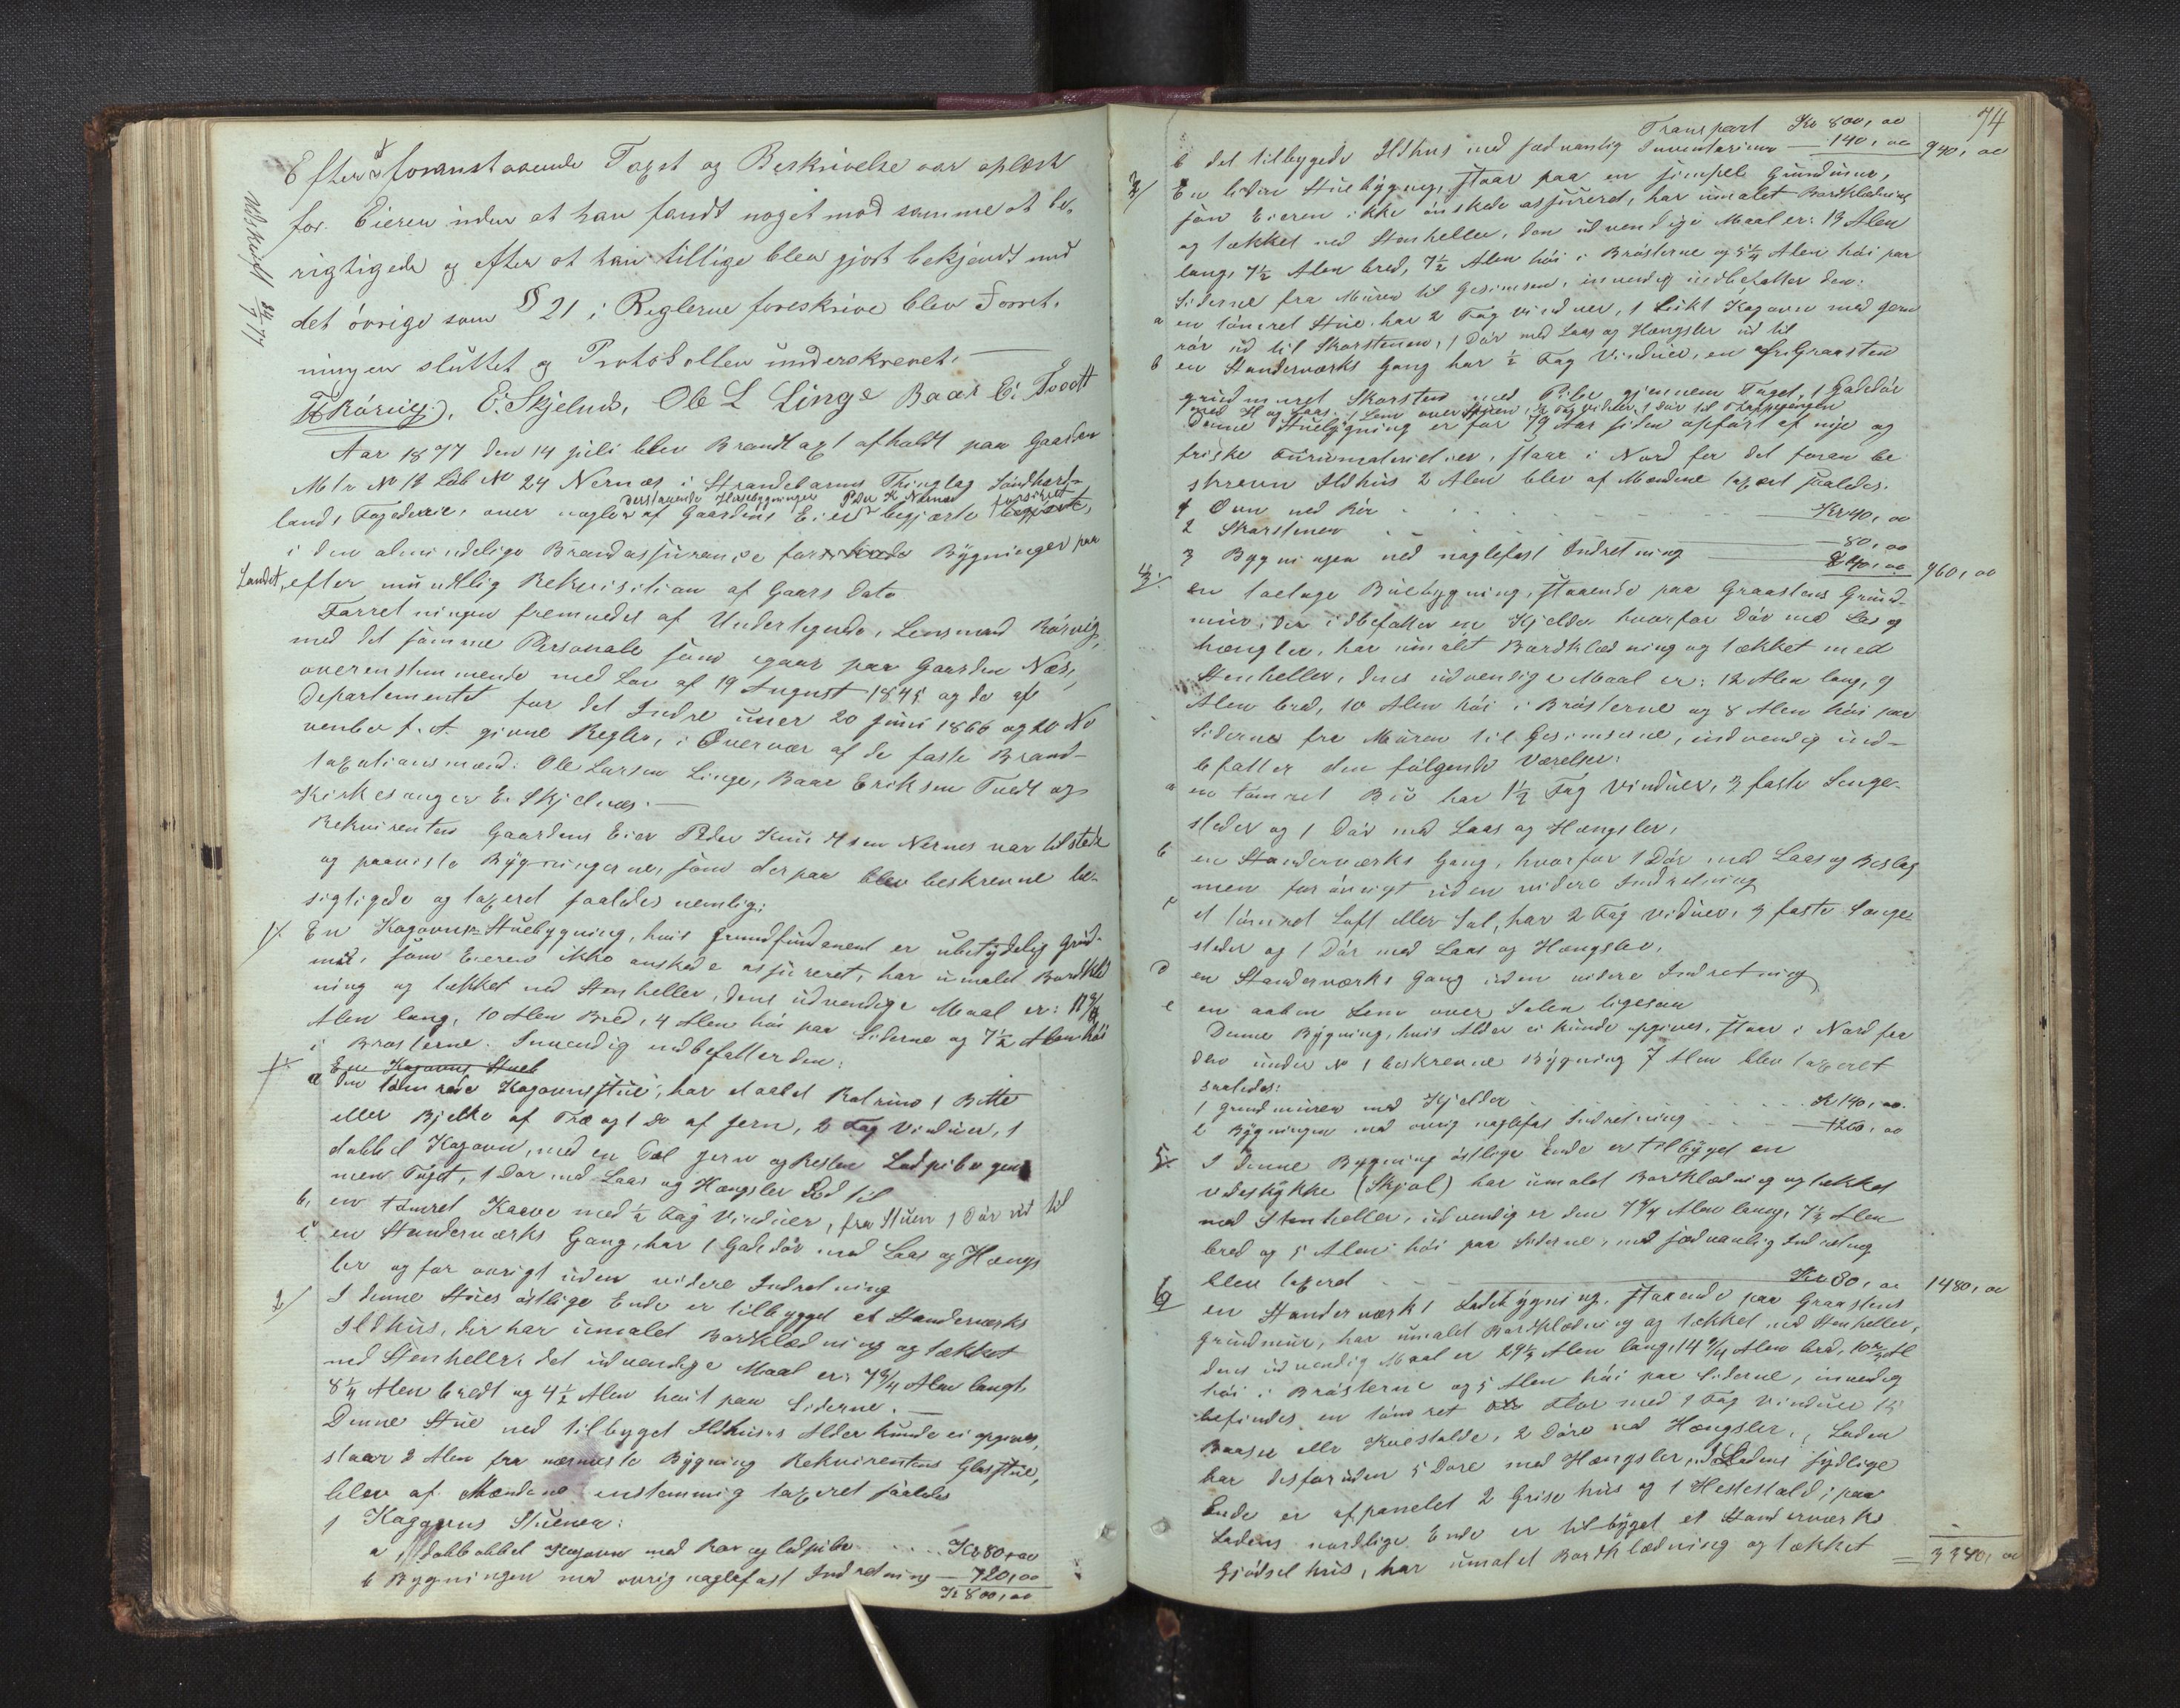 Efter at foranstaaende Taxst og Beskrivelse var oplæst
for Eieren uden at han fandt noget mod samme at be-
rigtigede og efter at han tillige blev gjort bekjendt med
det övrige som § 21 i Reglerne foreskrive blev Forret-
ningen sluttet og Protokollen underskrevet. —
Rörvig, E. Skjelnæs, Ole L Linge Baar E. Tvedt
Aar 1877 den 14 juli blev Brandtaxt afholdt paa Gaarden
Mtr No 12 Löb No 24 Nernæs i Strandebarms Thinglag Söndhord-
derstaaende Husebygninger Peder K Nernæs forsikret
lands Fogederie, over nogle af Gaardens Eier begjærte
i den almindelige Brandassurance for Bygninger paa
Landet, efter mundtlig Rekvisition af Gaars dato
Forretningen fremmedes af Undertegnede, Lensmand Rörvig,
med det samme Personale som igaar paa Gaarden Næs,
overenstemmende med Lov af 19 August 1845 og de af
Departementet for det Indre under 20 juni 1866 og 20 No
vember s. A. givne Regler, i Overvær af de faste Brand-
taxationsmænd: Ole Larsen Linge, Baar Eriksen Tvedt og
Kirkesanger E. Skjelnæs. —
Rekvirenten Gaardens Eier Peder Knudtsen Nernes var tilstede
og paaviste Bygningerne, som derpaa blev beskrevne be-
sigtigede og taxeret saaledes nemlig:
1/ En Kogovns Stuebygning, hvis Grundfundament er ubetydelig Grund-
mur, som Eieren ikke ønskede assureret, har umalet Bordklæd
ning og tækket med Stenheller, dens udvendige Maal er: 11 3/4
Alen lang, 10 Alen Bred, 4 Alen hói paa Siderne og 7 1/2 Alen hói
i Brösterne. Invendig indbefatter den:
En Kogovns Stueb
a den tömrede Kogovnsstue, har
eller Bjelke af Træ og 1 do af jern, 2 Fag Vinduer, 1
dobbel Kogovn, med en Del jern og Resten Ladpibe gjen
nem Taget, 1 Dör med Laas og Hængsler Ud til
b, en tömret Kaave med 1/2 Fag Vinduer, fra Stuen 1 Dör ud til
c en Standerværks Gang, har 1 Gadedör med Laas og Hængs
ler og for övrigt uden videre Indretning
2/ I denne Stues östlige Ende er tilbygget et Standerværks
Ildhus, der har umalet Bordklædning og tækket
med Stenheller. det udvendige Maal er: 7 3/4 Alen langt,
8 1/4 Alen bredt og 4 1/2 Alen hóit paa Siderne. —
Denne Stue med tilbyget Ildhuses Alder kunde ei opgives,
staar 3 Alen fra nærmeste Bygning Rekvirentens Glasstue,
blev af Mændene enstemmig taxeret saaledes
1 Kogovns Stuen:
a 1 dobbel Kogovn med Rör og ladpibe . . . Kr 80,00
b Bygningen med övrig naglefast Indretning — 720,00
Kr 800,00
Udskrift 24/7 77
74
Transport Kr 800,00
b det tilbygede Ildhus med sædvanlig Inventarium — 140,00 940,00
3/ En liden Stuebygning, staar paa en simpel Grundmur,
som Eieren ikke önskede assureret, har umalet Bordklædning
og tækket med Stenheller, den udvendige Maal er: 13 Alen
lang, 7 1/2 Alen bred, 7 1/2 Alen hói i Brösterne og 5 1/4 Alen hói paa
Siderne fra Muren til Gesimsen, invendig indbefatter den:
a en tömret Stue har 2 Fag Vinduer, 1 Kogovn med jern
rör ud til Skorstenen, 1 Dör med Laas og Hængsler ud til
b en Standerværks Gang har 1/2 Fag Vinduer, en af Graasten
grundmuret Skorsten med Pibe gjennem Taget, 1 Gadedör
med H og Laas. 1 Lem over Stuen, 1/2 Fag vinduer, 1 Dör til Trappegangen
Denne Stuebygning er for 19 Aar siden opfört af nye og
friske Furumaterialier, staar i Nord for det foran be
skrevne Ildhus 2 Alen blev af Mændene taxeret saaledes.
1 Ovn med Rör . . . Kr 40,00
2 Skorstenen . . . — 80,00
3 Bygningen med naglefast Indretning 840,00 960,00
4/ en toetage Buebygning, staaende paa Graastens Grund-
mur, der idbefatter en Kjelder hvorfor Dör med Las og
hængler, har umalet Bordklædning og tækket med
Stenheller, dens udvendige Maal er: 12 Alen lang, 9
Alen bred, 10 Alen hói i Brösterne og 8 Alen hói paa
Siderne fra Muren til Gesimserne, indvendig ind-
befatter den fölgende Værelser:
a en tömret Bue har 1 1/2 Fag Vinduer, 3 faste Senge-
steder og 1 Dör med Laas og Hængsler,
b en Standerværks Gang, hvorfor 1 Dör med Laas og Beslag
men for övrigt uden videre Indretning
c et tömret Loft eller Sal, har 2 Fag viduer, 3 faste Senge
steder og 1 Dör med Laas og Hængsler.
d en Standerværks Gang uden videre Indretning
e en aaben Lem over Salen ligesaa
Denne Bygning, hvis Alder ei kunde opgives, staar i Nord fra
den under No 1 beskrevne Bygning 7 Alen blev taxeret
saaledes:
1 grundmuren med Kjelder . . . Kr 140,00.
2 Bygningen med övrig naglefast Indretning . . . — 1260,00
5/ I denne Bygning östlige Ende er tilbyget en
vedeskykke (Skjol) har umalet Bordklædning og tækket
med Stenheller, udvendig er den 7 3/4 Alen lang, 7 1/2 Alen
bred og 5 Alen hói paa Siderne, med sædvanlig Indretning
blev taxeret . . . Kr 80,00 1480,00
6/ en Standerværks Ladebygning, staaende paa Graastens
Grundmur, har umalet Bordklædning og tækket med Stenheller,
dens udvendig Maal er 29 1/2 Alen lang, 14 3/4 Alen bred, 10 Al
hói i Brösterne og 5 Alen hói paa Siderne, invendig
befindes en tömret Flor med 1 Fag Vinduer 15
Baaser eller Kuestalde, 2 Döre med Hængsler, Laden
har desforuden 5 Döre med Hængsler, i Ladens sydlige
Ende er afpanelet 2 Grisehus og 1 Hestestald; paa
Ladens nordlige Ende er tilbyget et Standerværks
Gjödsel hus, har umalet Bordklædning og tækket = 3380,00